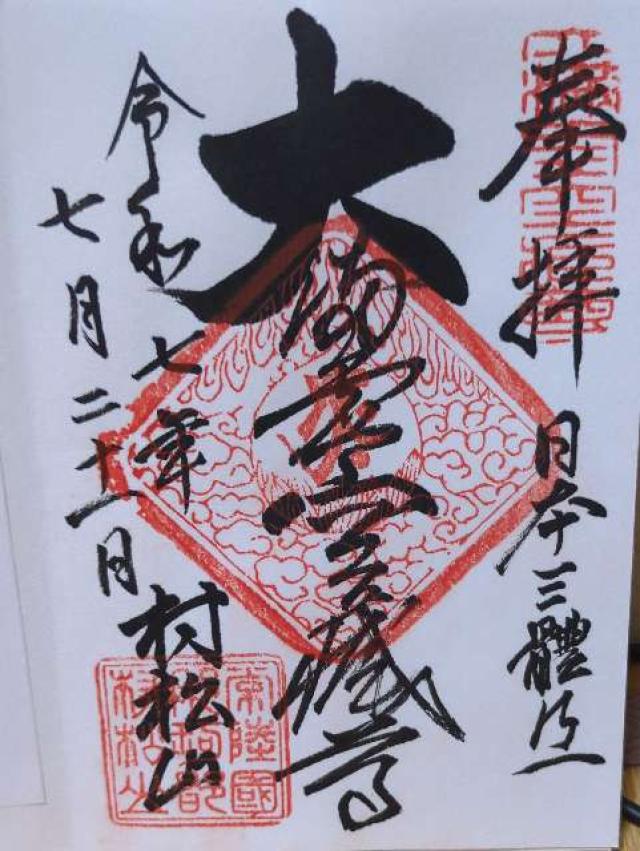 奉拝
日本三體之一
大満虚空蔵尊
令和七年
七月二十一日
村松山
常陸國
那珂郡
村松山